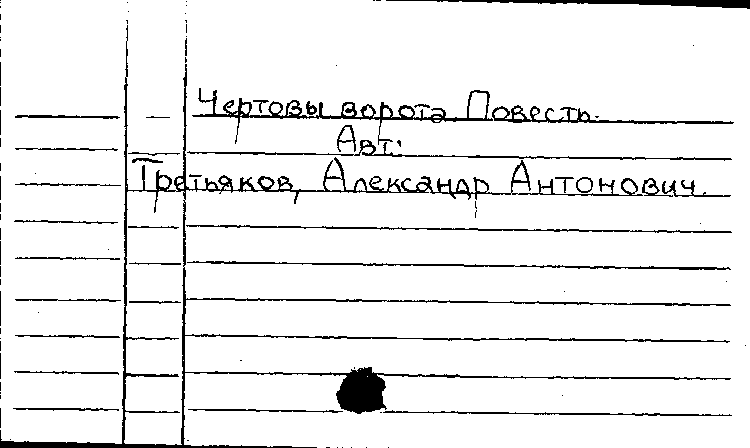 Чертовы ворота. Повесть.
Авт:
Третьяков, Александр Антонович.